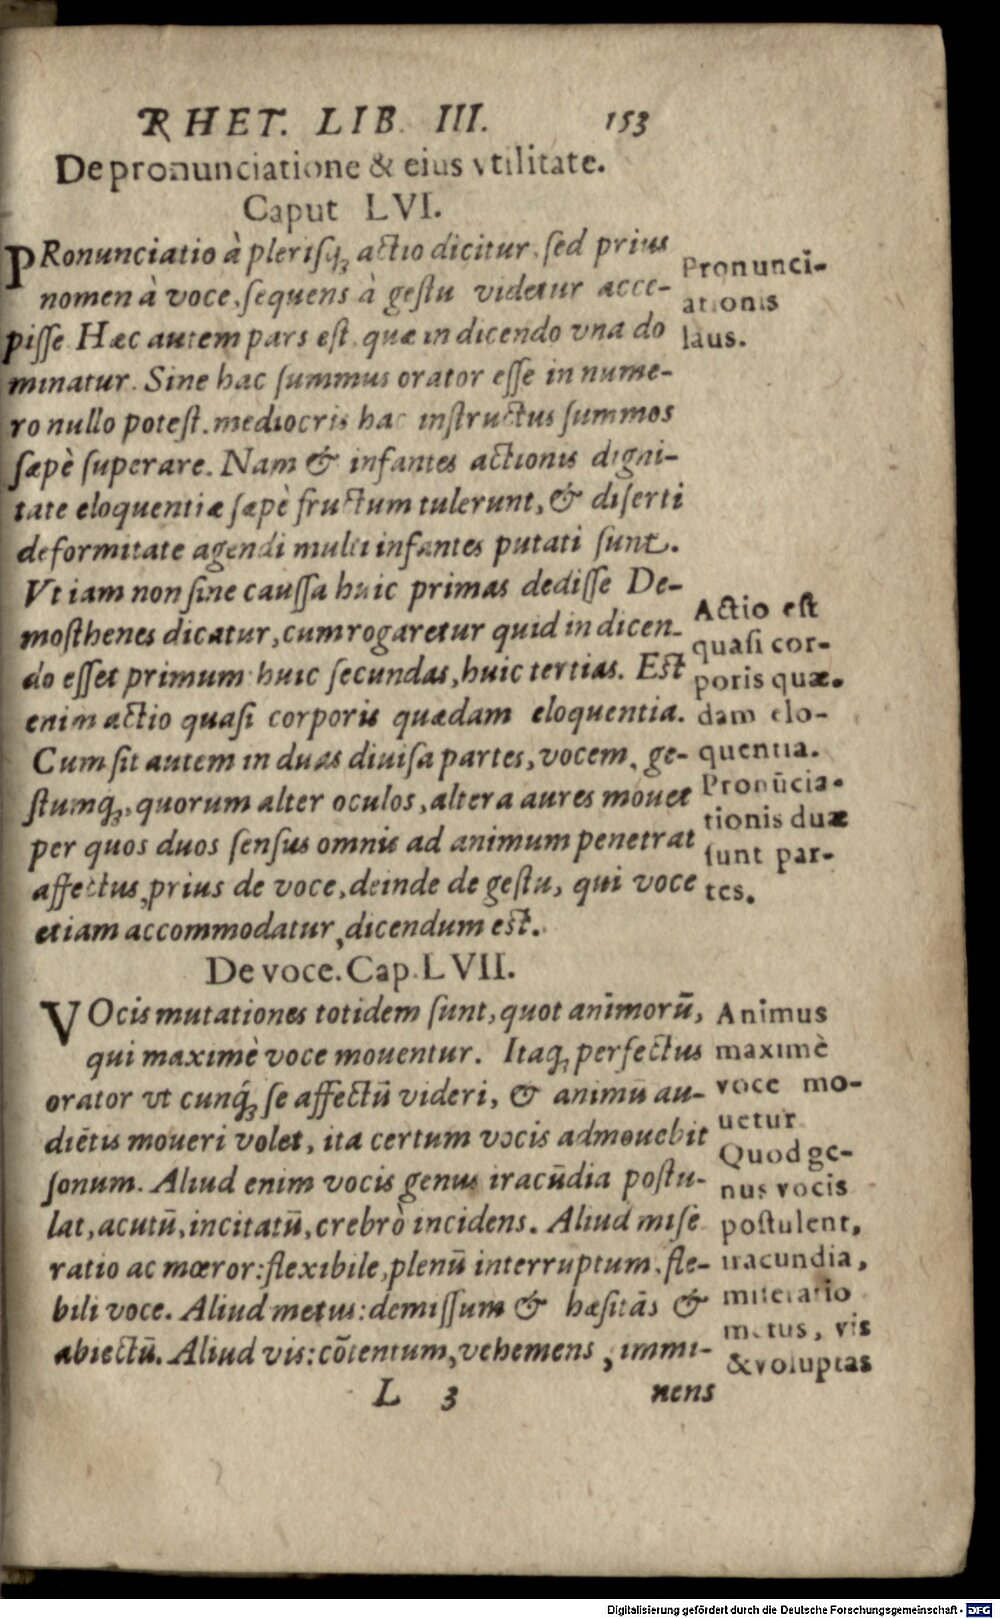 RHET. LIB. III. 153
De pronunciatione & eius vtilitate.
Caput LVI.
PRonunciatio à plerisq; actio dicitur, sed prius
nomen à voce, sequens à gestu videtur acce-
pisse Hæc autem pars est, quæ in dicendo vna do
minatur. Sine hac summus orator esse in nume-
ro nullo potest. mediocris hac instructus summos
sæpè superare. Nam & infantes actionis digni-
tate eloquentiæ sæpè fructum tulerunt, & diserti
deformitate agendi multi infantes putati sunt.
Vt iam non sine caussa huic primas dedisse De-
mosthenes dicatur, cum rogaretur quid in dicen-
do esset primum huic secundas, huic tertias. Est
enim actio quasi corporis quædam eloquentia.
Cum sit autem in duas diuisa partes, vocem, ge-
stumq;, quorum alter oculos, altera aures mouet
per quos duos sensus omnis ad animum penetrat
affectus, prius de voce, deinde de gestu, qui voce
etiam accommodatur, dicendum est.
Pronunci-
ationis
laus.
Actio est
quasi cor-
poris quæ-
dam elo-
quentia.
Pronūcia-
tionis duæ
sunt par-
tes.
De voce. Cap. LVII.
VOcis mutationes totidem sunt, quot animorū,
qui maximè voce mouentur. Itaq; perfectus
orator vt cunq; se affectū videri, & animū au-
diētis moueri volet, ita certum vocis admouebit
sonum. Aliud enim vocis genus iracūdia postu-
lat, acutū, incitatū, crebrò incidens. Aliud mise
ratio ac mœror: flexibile, plenū interruptum, fle-
bili voce. Aliud metus: demissum & hæsitās &
abiectū. Aliud vis: cōtentum, vehemens, immi-
Animus
maximè
voce mo-
uetur
Quod ge-
nus vocis
postulent,
iracundia,
miseratio
metus, vis
& voluptas
L 3 nens
Digitalisierung gefördert durch die Deutsche Forschungsgemeinschaft - DFG